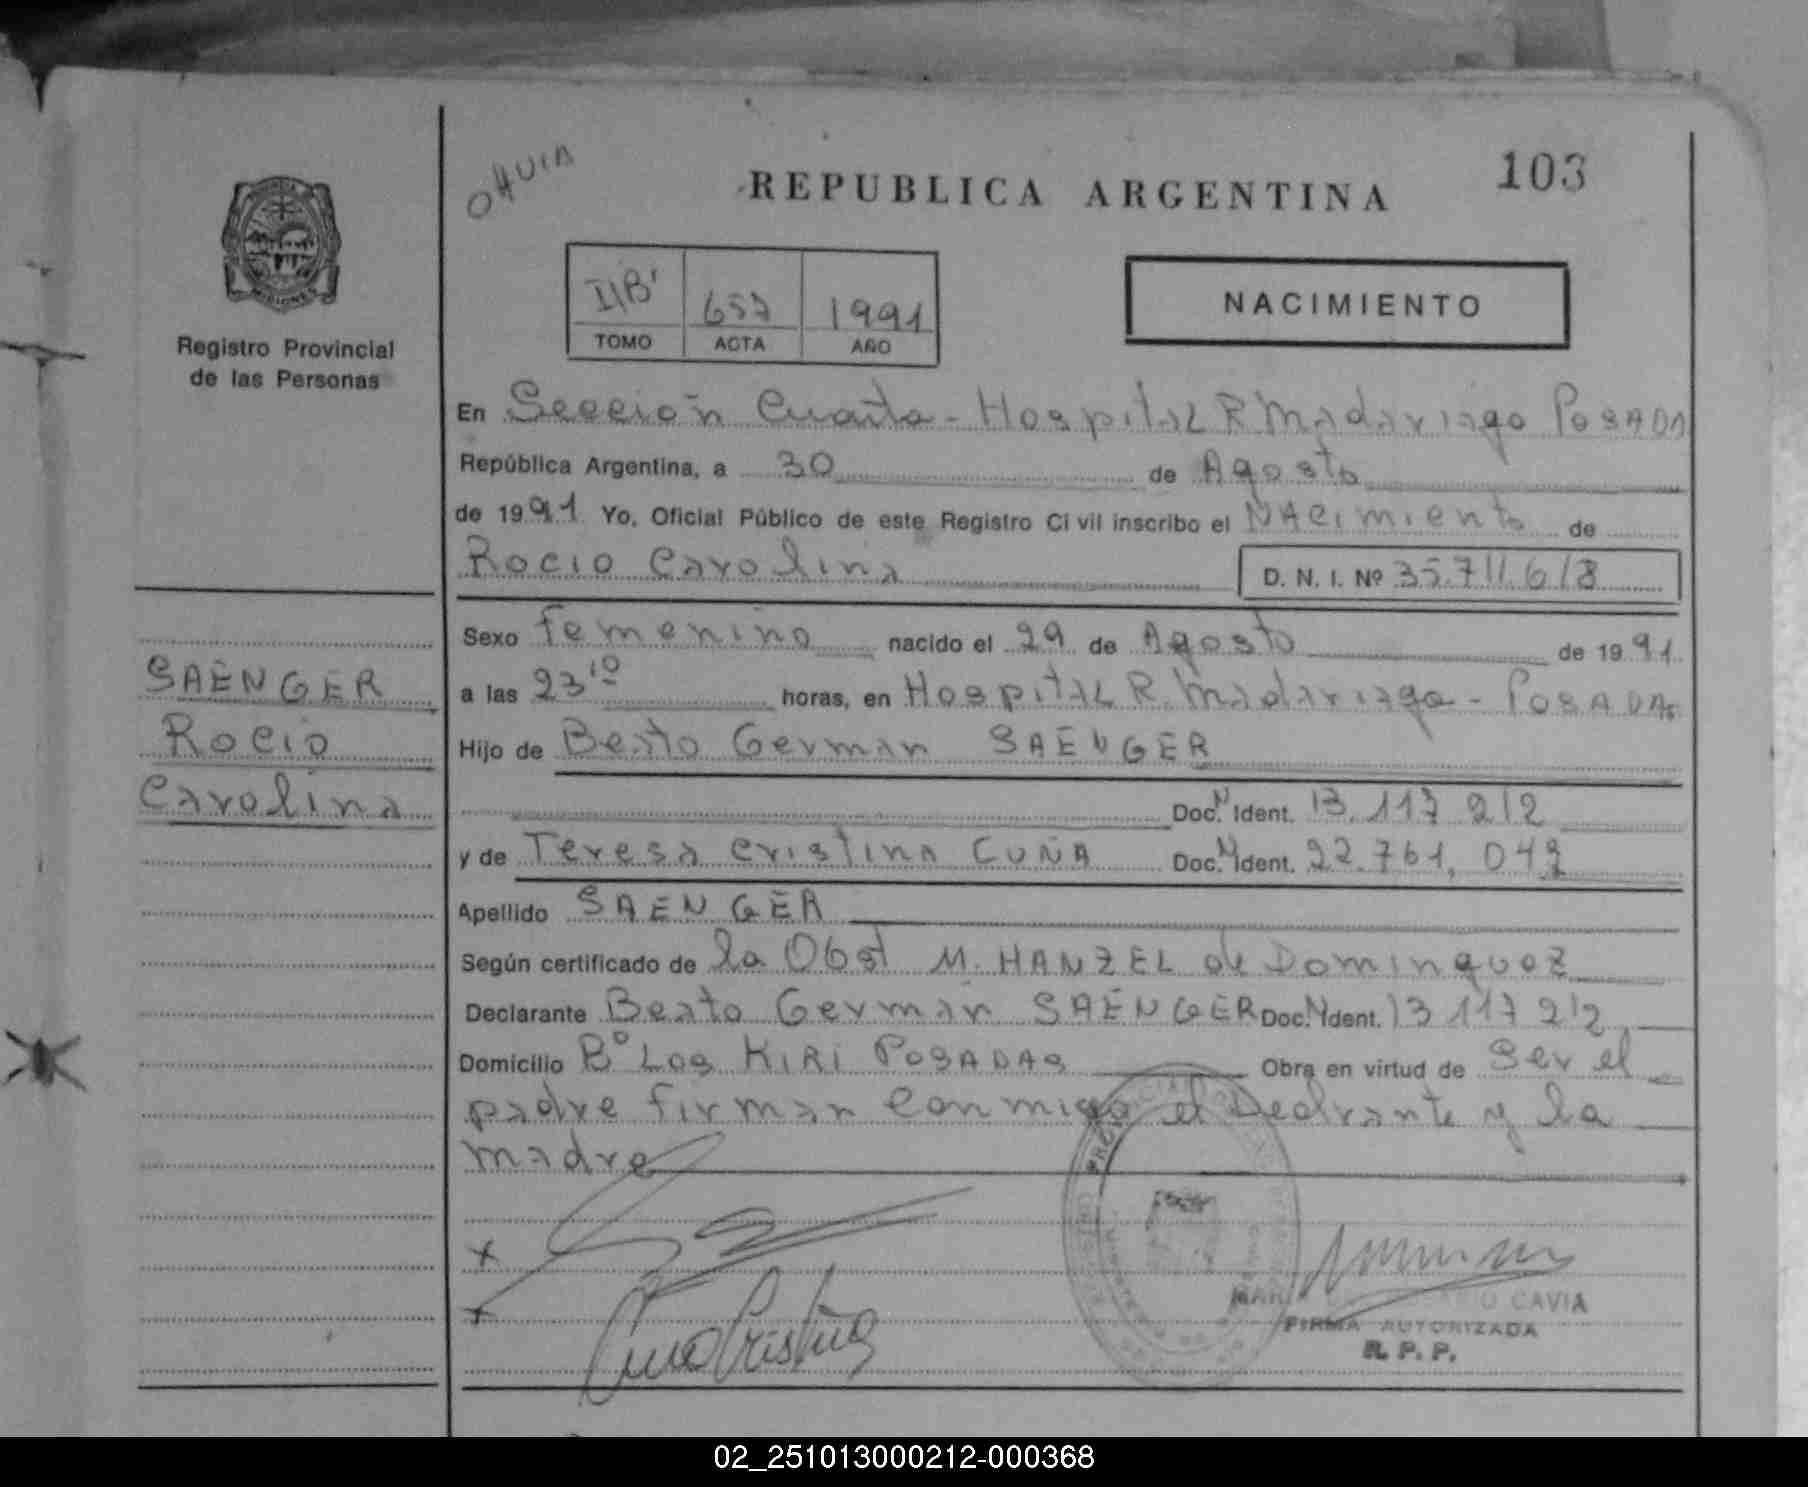 REPUBLICA ARGENTINA
103
NACIMIENTO
II B' 657 1991
TOMO ACTA AÑO
MISIONES
Registro Provincial
de las Personas
En Sección Cuarta - Hospital R Madariaga POSADA
República Argentina, a 30 de Agosto
de 1991 Yo, Oficial Público de este Registro Civil inscribo el NAcimiento de
Rocio Carolina D. N. I. Nº 35.711.618
Sexo femenino nacido el 29 de Agosto de 1991
a las 23¹⁰ horas, en Hospital R. Madariaga - POSADAS
Hijo de Beato German SAENGER
Doc. N Ident. 13.117 212
y de Teresa Cristina CUÑA Doc. N Ident. 22.761.042
Apellido SAENGER
Según certificado de la Obst M. HANZEL de Dominguez
Declarante Beato German SAENGER Doc. N Ident. 13 117 212
Domicilio Bº Los KIRI POSADAS Obra en virtud de ser el
padre firman conmigo el Declrante y la
madre
SAENGER
Rocio
Carolina
x
x
Cuña Cristina
CAVIA
FIRMA AUTORIZADA
R. P. P.
02_251013000212-000368